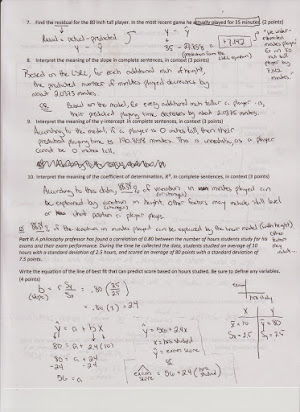 7. Find the residual for the 80 inch tall player. In the most recent game he actually played for 35 minutes. (2 points)
Residual = actual - predicted
y - ŷ
y - ŷ
35 - 27.858
+7.142
8. Interpret the meaning of the slope in complete sentences, in context (3 points)
Based on the LSRL, for each additional inch of height,
the predicted number of minutes played decreased by
about minutes.
OR Based on the model, for every additional inch taller a player is,
their predicted playing time decreases by about minutes.
9. Interpret the meaning of the y-intercept in complete sentences, in context (3 points)
According to the model, if a player is 0 inches tall, then their
predicted playing time is minutes. This is unrealistic, as a player
cannot be 0 inches tall.
10. Interpret the meaning of the coefficient of determination, R², in complete sentences, in context (3 points)
According to this data, of variation in minutes played can
be explained by variation in height. Other factors may include skill level
or what position a player plays.
of the variation in minutes played can be explained by the model (with height)
Part II: A philosophy professor has found a correlation of 0.80 between the number of hours students study for his
exams and their exam performance. During the time he collected the data, students studied an average of 10
hours with a standard deviation of 2.5 hours, and scored an average of 80 points with a standard deviation of
7.5 points.
Write the equation of line of best fit that can predict score based on hours studied. Be sure to define any variables.
(4 points)
b = r Sy/Sx = .80 (7.5/2.5)
(slope)
= .80 (3) = 2.4
exam
hrs study
ŷ = a + bx
80 = a + 2.4(10)
80 = a + 24
-24 -24
56 = a
ŷ = 56 + 2.4x
x = hrs studied
ŷ = exam score
OR
exam score = 56 + 2.4 (hrs studied)
X Y
x̄ = 10 ȳ = 80
Sx = 2.5 Sy = 7.5